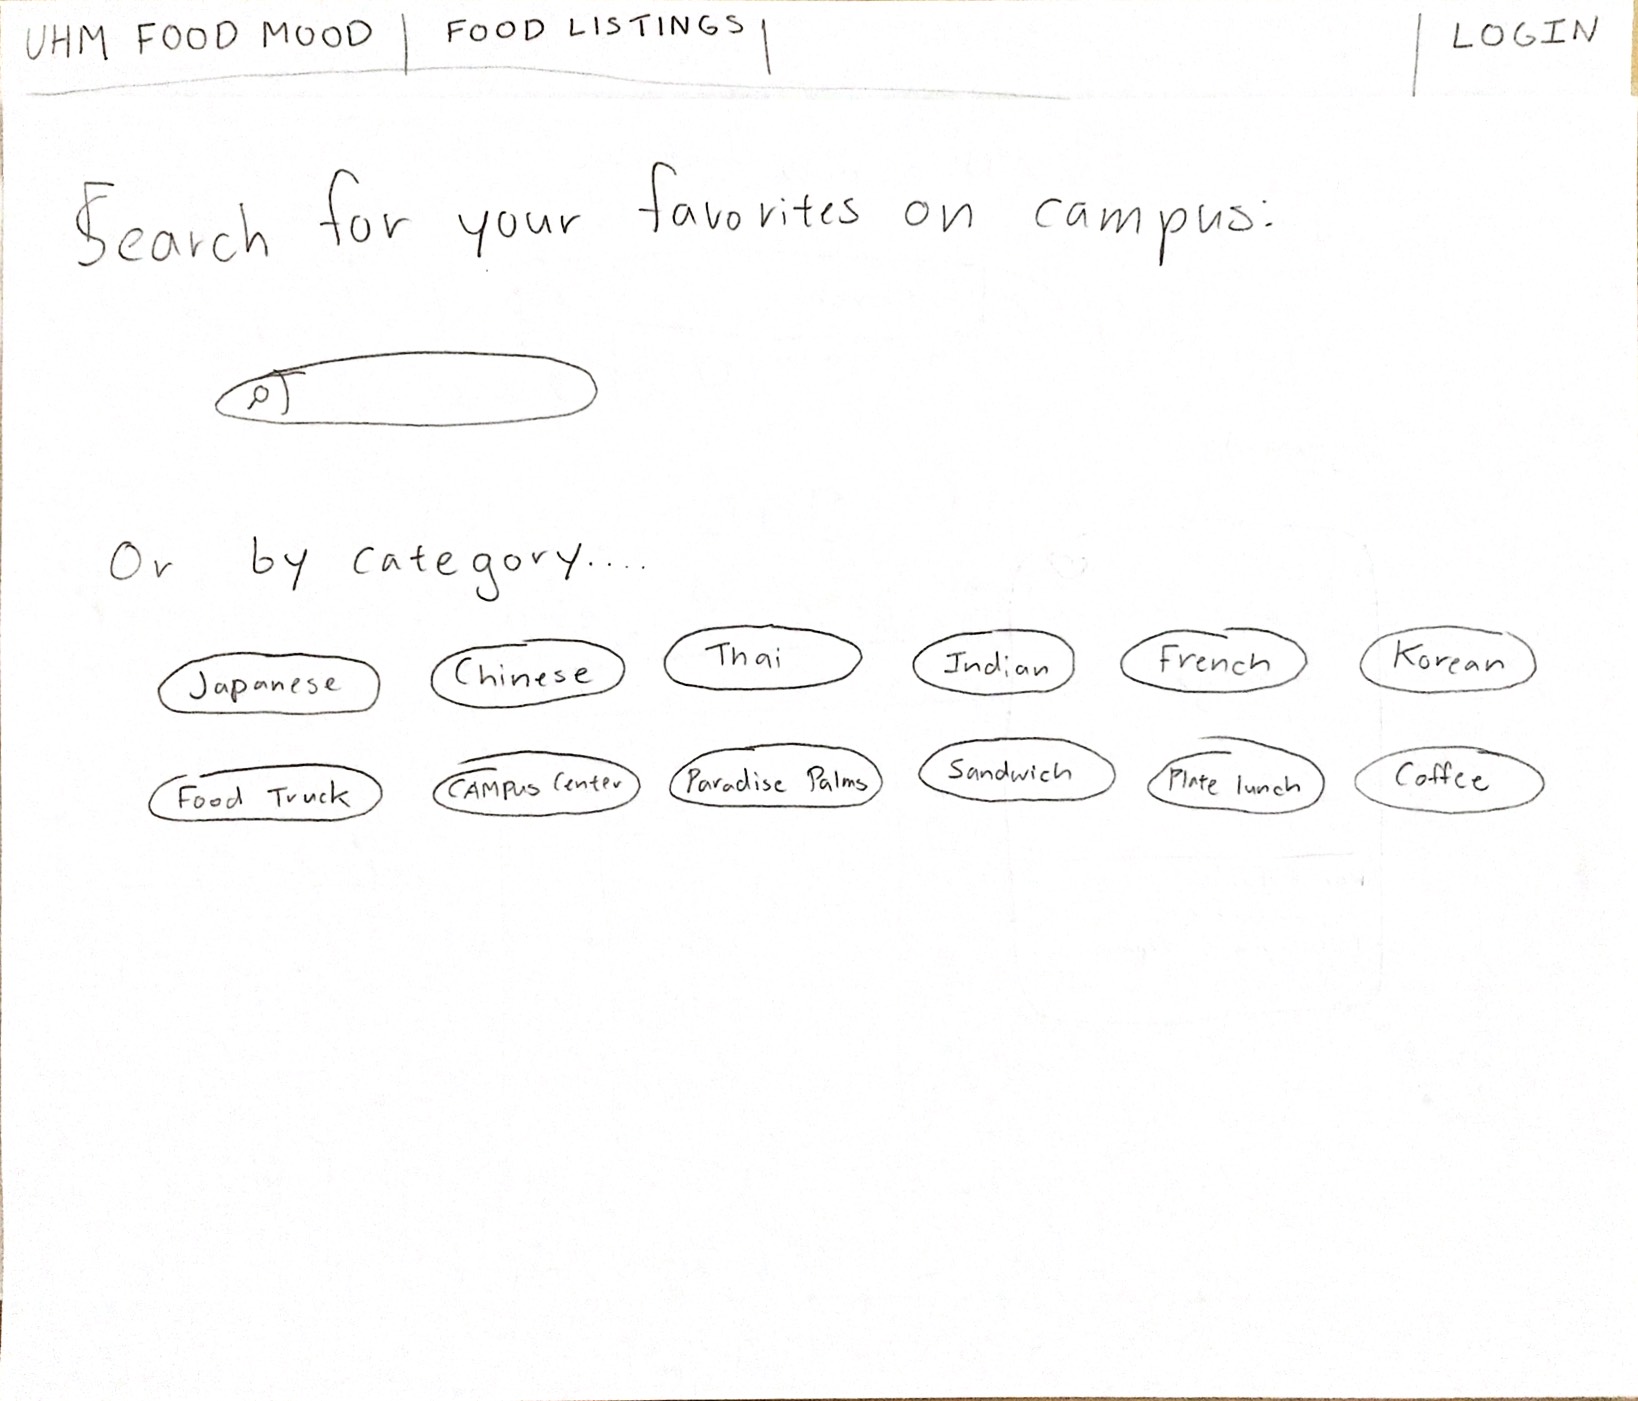 UHM FOOD MOOD | FOOD LISTINGS | | LOGIN
Search for your favorites on campus:
Or by category....
Japanese Chinese Thai Indian French Korean
Food Truck CAMPUS Center Paradise Palms Sandwich Plate lunch Coffee